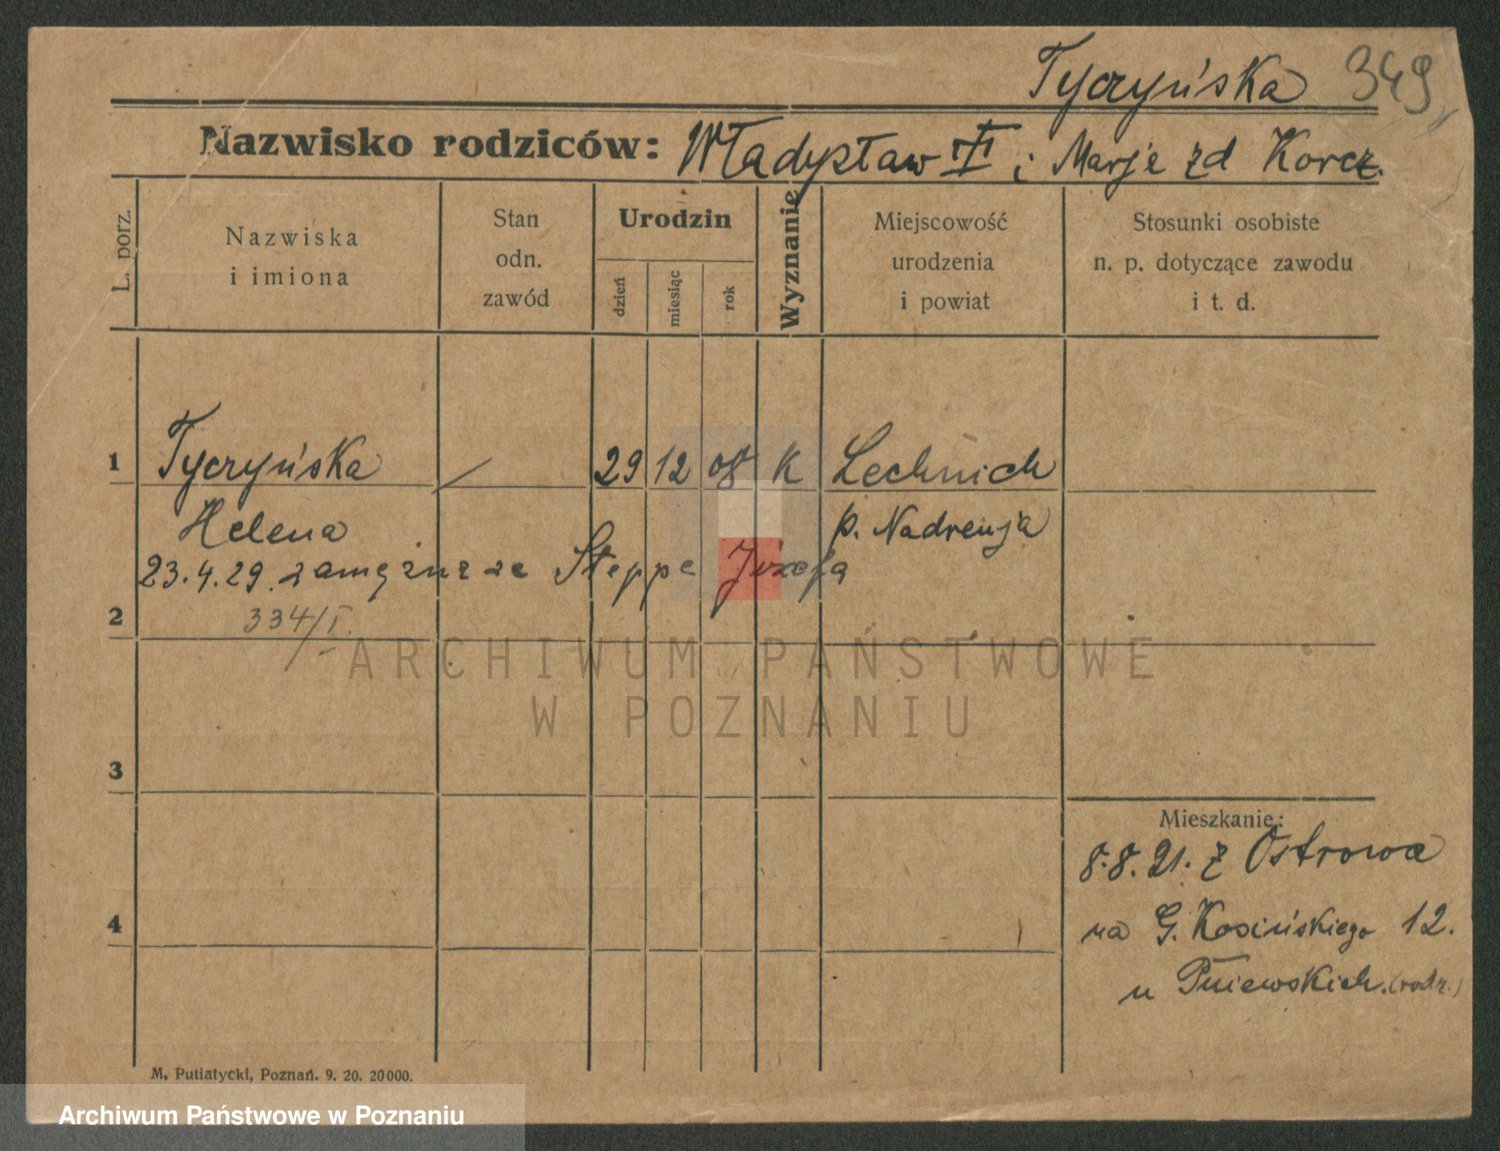 Tyczyńska 349
Nazwisko rodziców: Władysław i Marje zd Korcz.
L. porz.
Nazwiska
i imiona
Stan
odn.
zawód
Urodzin
dzień
miesiąc
rok
Wyznanie
Miejscowość
urodzenia
i powiat
Stosunki osobiste
n. p. dotyczące zawodu
i t. d.
1 Tyczyńska / 29 12 08 K Lechnich
Helena p. Nadrenja
23.4.29. zamężna ze Steppe Józefa
2 334/I.
ARCHIWUM PAŃSTWOWE
W POZNANIU
3
Mieszkanie:
8.8.21. z Ostrowa
4 na G. Kosińskiego 12.
u Pniewskich. (rodz.)
M. Putiatycki, Poznań. 9. 20. 20000.
Archiwum Państwowe w Poznaniu